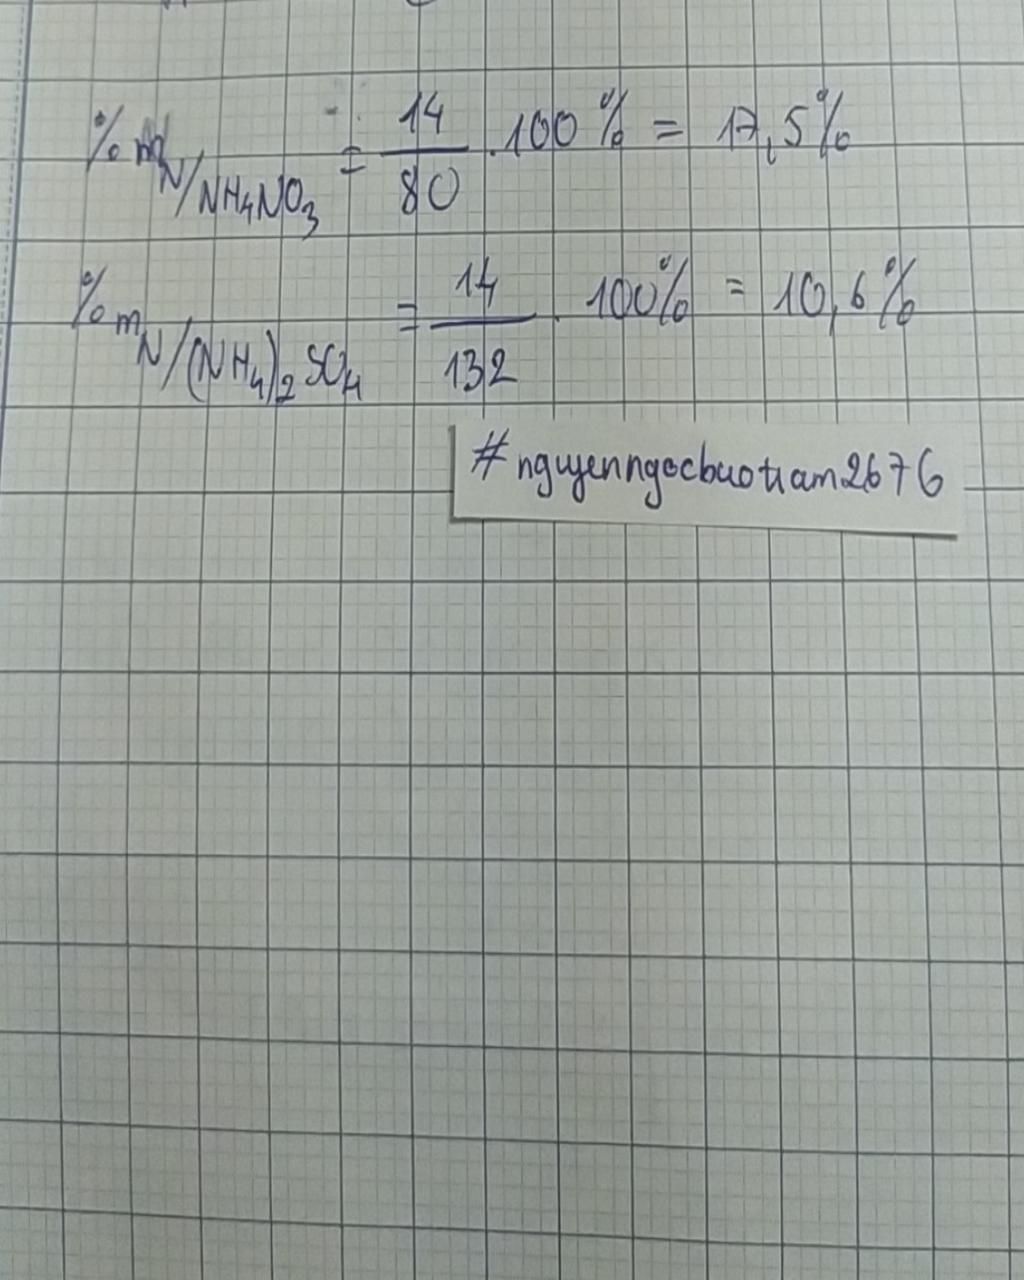 %mN/NH4NO3 = 14/80 . 100% = 17,5%
%mN/(NH4)2SO4 = 14/132 . 100% = 10,6%
#nguyenngocbuotram2676